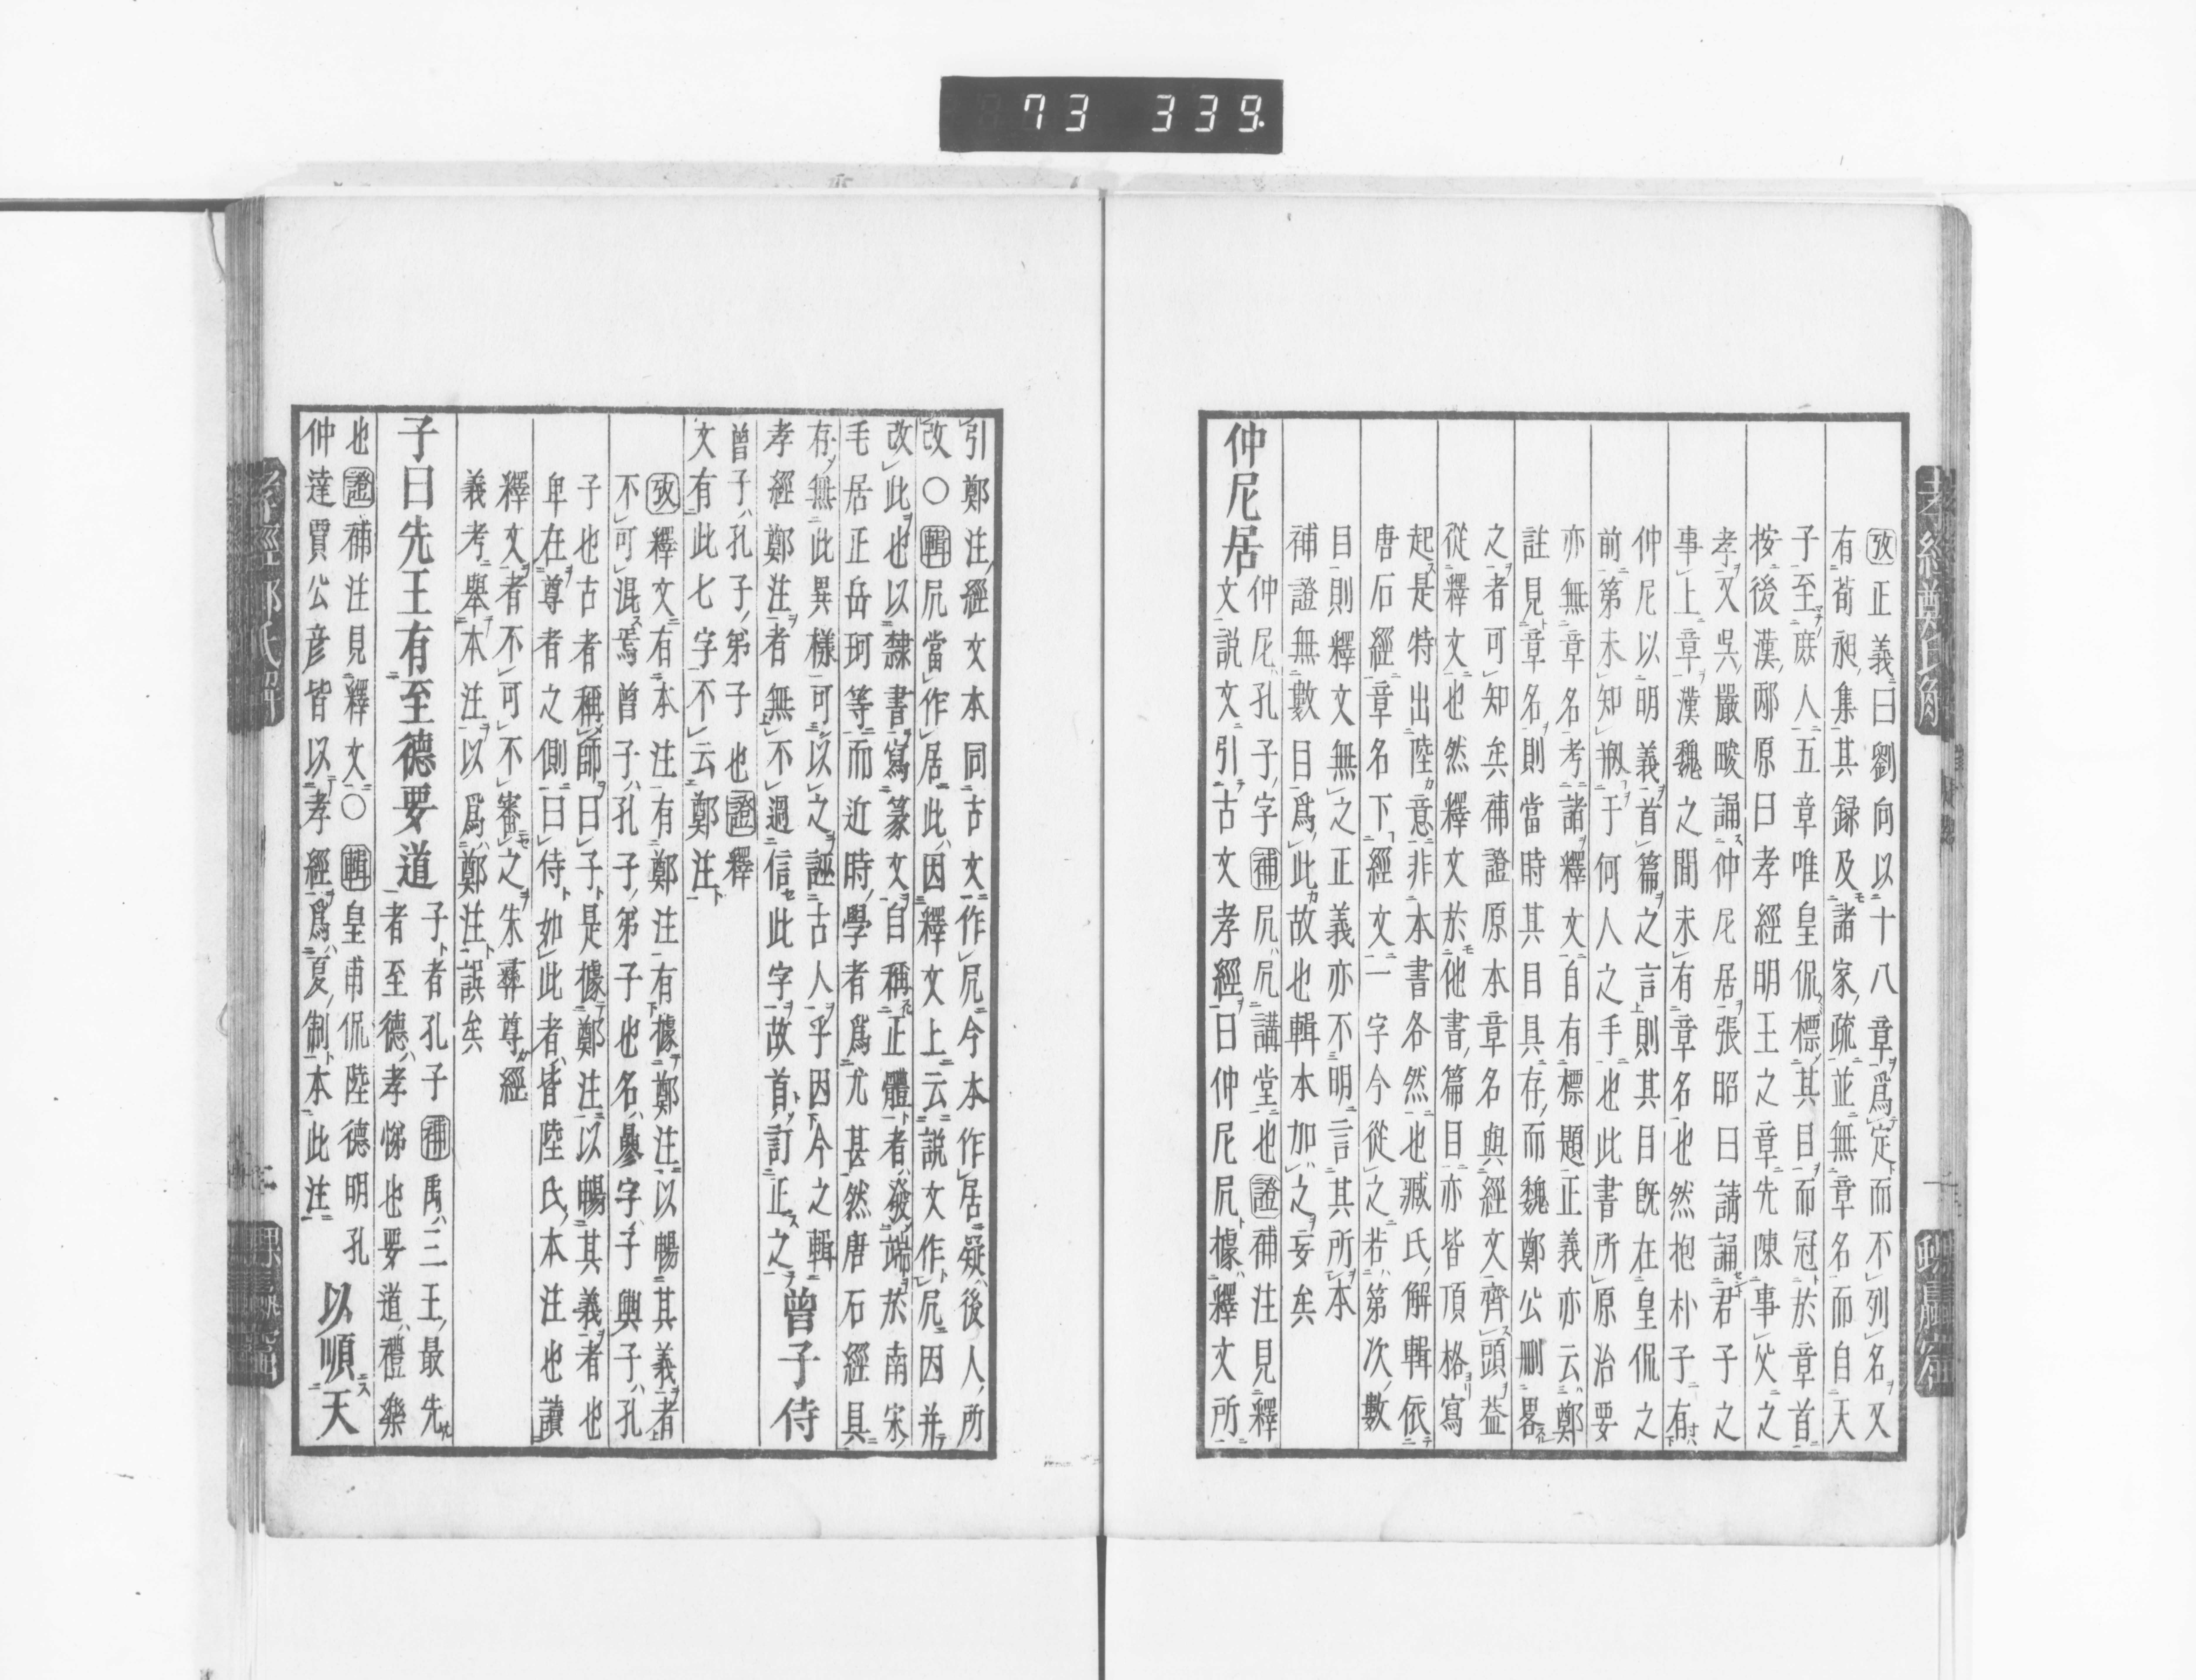 73 339.
攷正義曰劉向以十八章爲定而不列名又
有荀昶集其録及諸家疏並無章名而自天
子至庶人五章唯皇侃標其目而冠於章首
按後漢邴原曰孝經明王之章先陳事父之
孝又吳嚴畯誦仲尼居張昭曰請誦君子之
事上章漢魏之間未有章名也然抱朴子有
仲尼以明義首篇之言則其目旣在皇侃之
前第未知剏于何人之手也此書所原治要
亦無章名考諸釋文自有標題正義亦云鄭
註見章名則當時其目具存而魏鄭公刪畧
之者可知矣補證原本章名與經文齊頭葢
從釋文也然釋文於他書篇目亦皆頂格寫
起是特出陸意非本書各然也臧氏解輯依
唐石經章名下經文一字今從之若第次數
目則釋文無之正義亦不明言其所本
補證無數目爲此故也輯本加之妄矣
仲尼居
仲尼孔子字補凥凥講堂也證補注見釋
文説文引古文孝經曰仲尼凥據釋文所
引鄭注經文本同古文作凥今本作居疑後人所
改〇輯凥當作居此因釋文上云説文作凥因并
改此也以隸書寫篆文自稱正體者發端於南宋
毛居正岳珂等而近時學者爲尤甚然唐石經具
存無此異樣可以之誣古人乎因今之輯
孝經鄭注者無不過信此字故首訂正之
曾子侍
曾子孔子弟子也證釋
文有此七字不云鄭注
攷釋文有本注有鄭注有據鄭注以暢其義者
不可混焉曾子孔子弟子也名參字子輿子孔
子也古者稱師曰子子是據鄭注以暢其義者也
卑在尊者之側曰侍如此者皆陸氏本注也讀
釋文者不可不審之朱彝尊經
義考舉本注以爲鄭注誤矣
子曰先王有至德要道
子者孔子補禹三王最先
者至德孝悌也要道禮樂
也證補注見釋文〇輯皇甫侃陸德明孔
仲達賈公彦皆以孝經爲夏制本此注
以順天